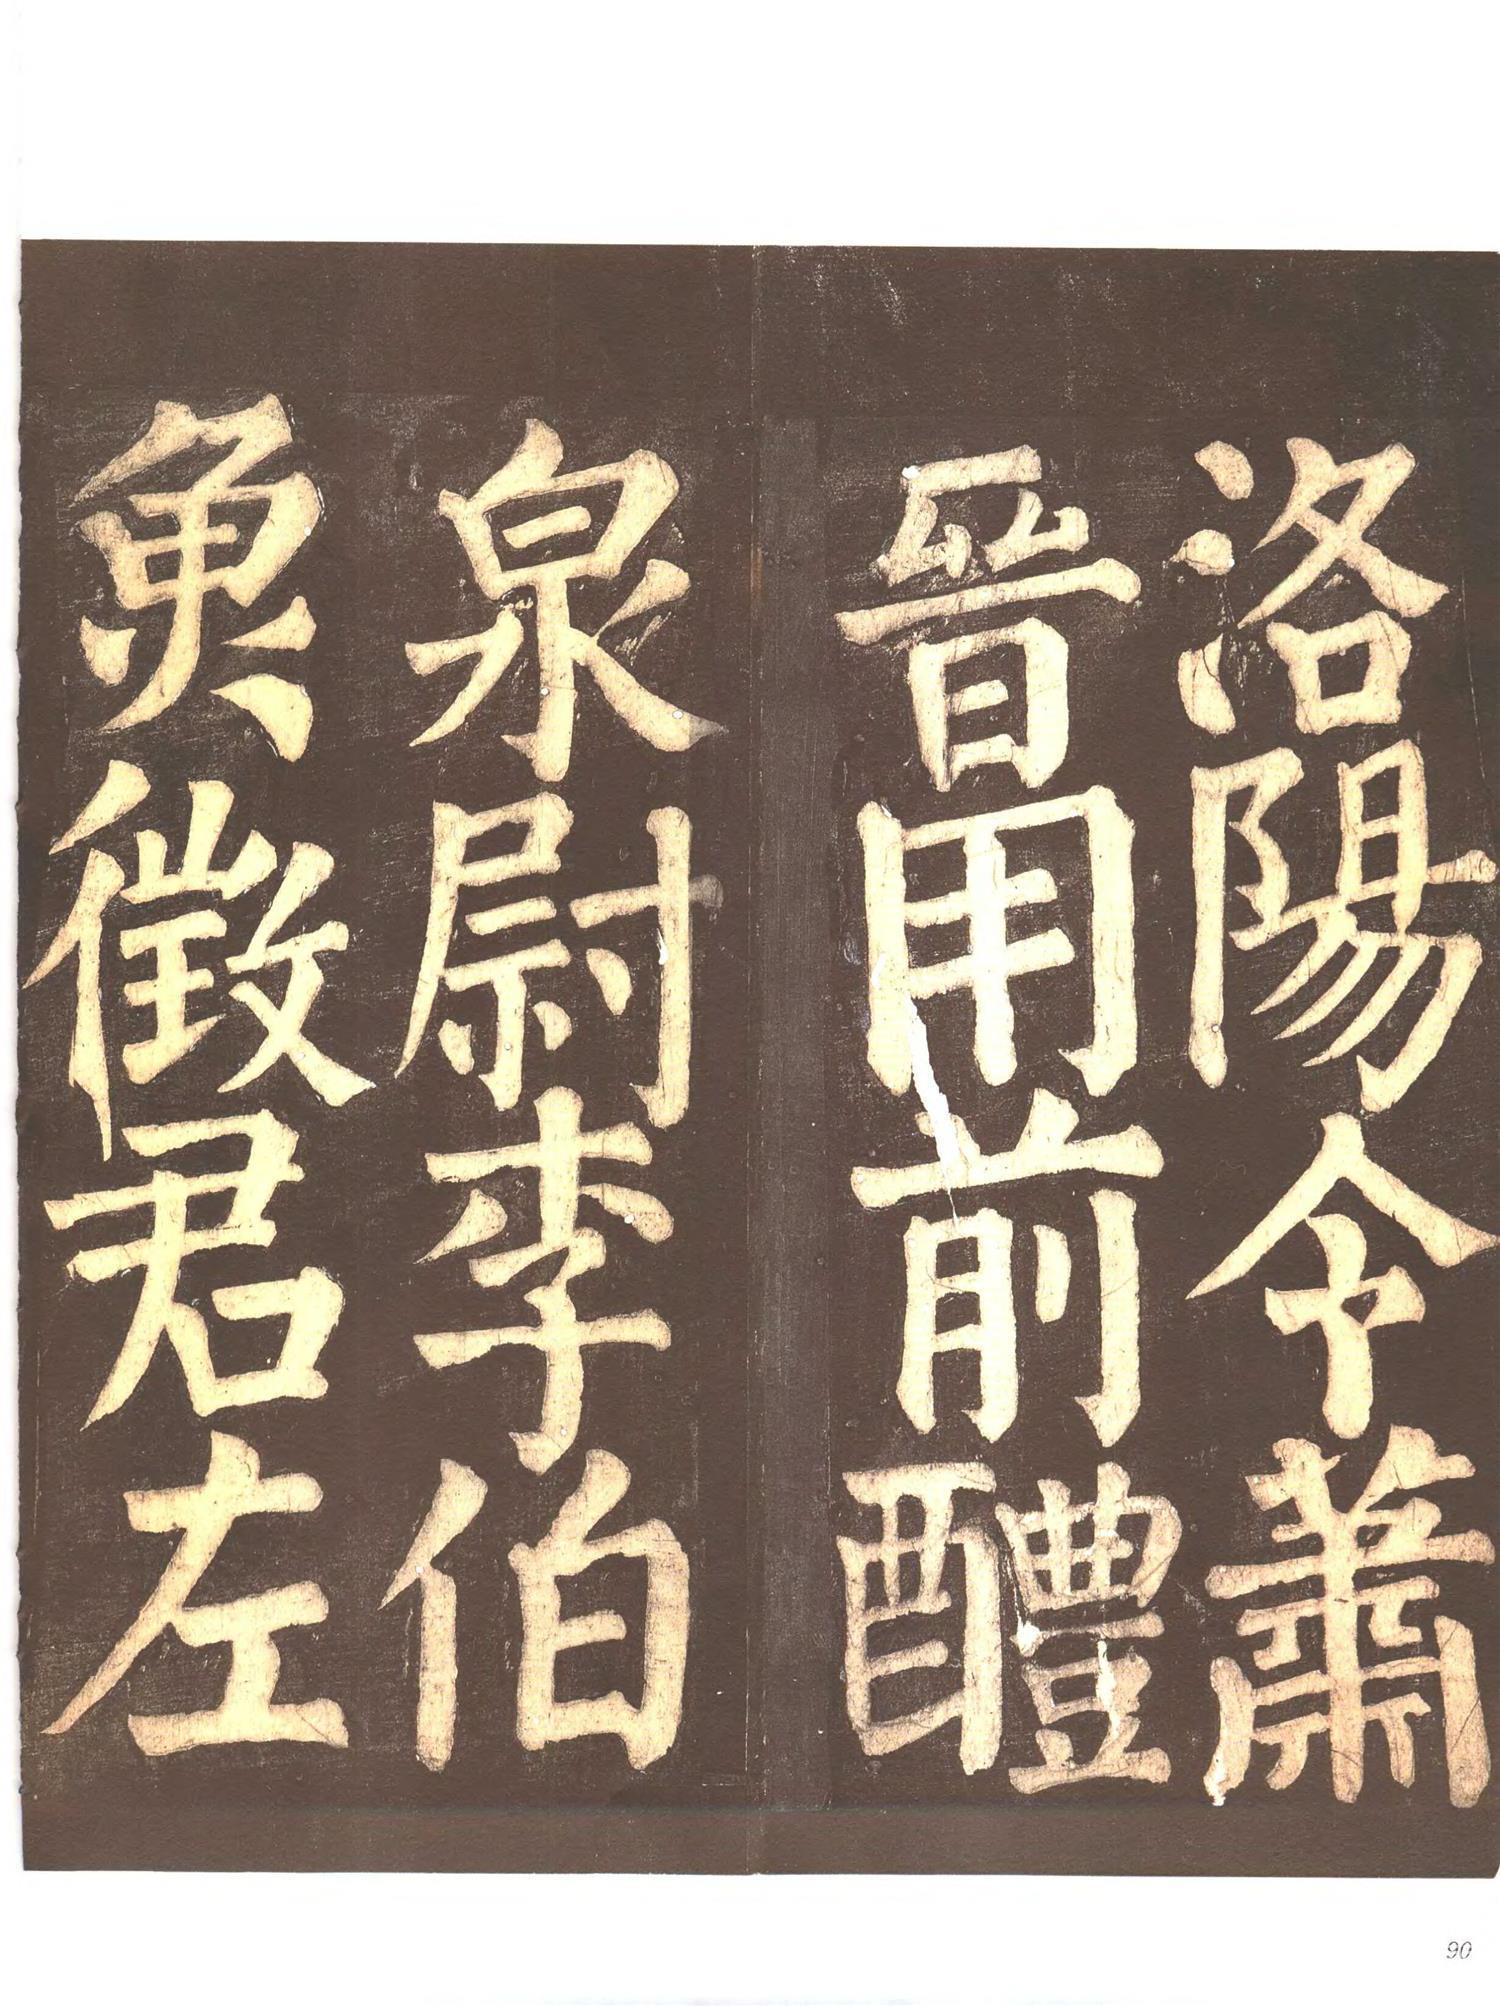 洛陽令蕭
晉用前醴
泉尉李伯
魚徵君左
90